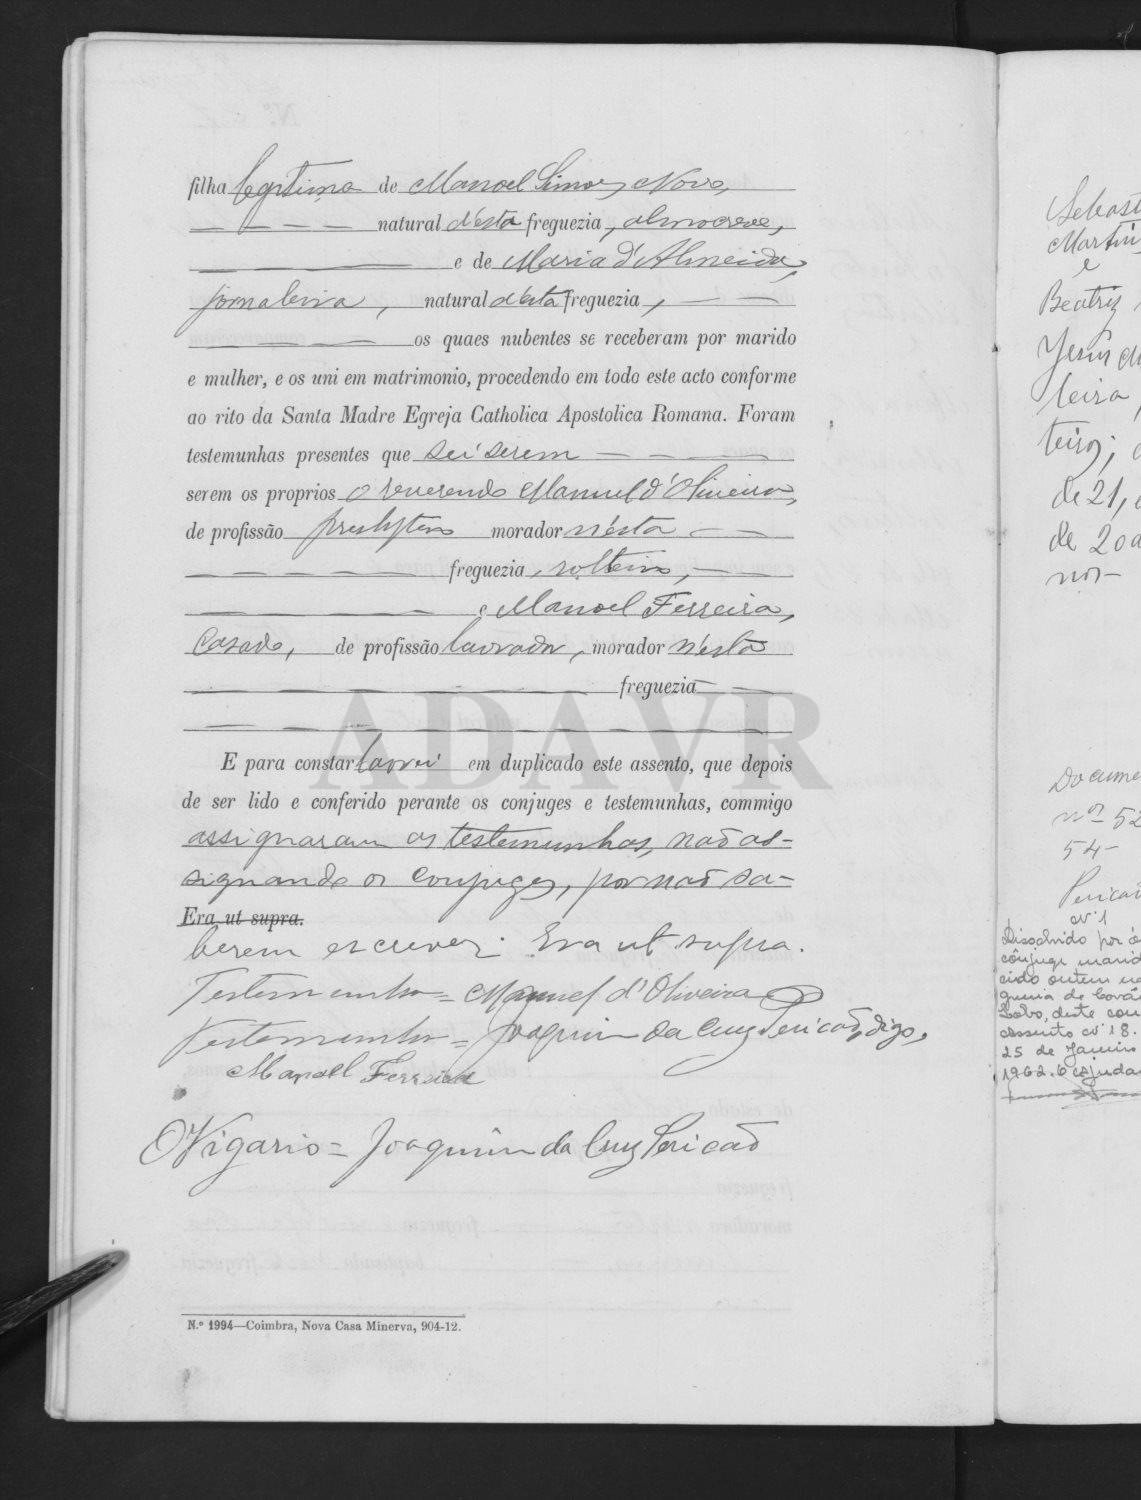 filha legitima de Manoel Simões Novo,
natural d'esta freguezia, almocreve,
e de Maria d'Almeida,
jornaleira, natural d'esta freguezia,
os quaes nubentes se receberam por marido
e mulher, e os uni em matrimonio, procedendo em todo este acto conforme
ao rito da Santa Madre Egreja Catholica Apostolica Romana. Foram
testemunhas presentes que sei serem
serem os proprios o reverendo Manuel d'Oliveira,
de profissão presbytero morador n'esta
freguezia, solteiro,
e Manoel Ferreira,
casado, de profissão lavrador, morador n'esta
freguezia
ADAVR
E para constar lavrei em duplicado este assento, que depois
de ser lido e conferido perante os conjuges e testemunhas, commigo
assignaram as testemunhas, não as-
signando os conjuges, por não sa-
Era ut supra.
berem escrever. Era ut supra.
Testemunha = Manuel d'Oliveira
Testemunha = Joaquim da Cruz Pericão, digo,
Manoel Ferreira
O Vigario = Joaquim da Cruz Pericão
N.º 1994—Coimbra, Nova Casa Minerva, 904-12.
Sebasti
Martin
e
Beatriz
Jesus d
teiro;
de 21,
de 20 a
nos-
Docume
nos 52
54-
Pericão
Nº 1
Dissolvido por ó
cônjuge marid
cido ontem na
guesia de Cová
Lobo, deste con
assento nº 18.
25 de Janeiro
1962. O Ajuda